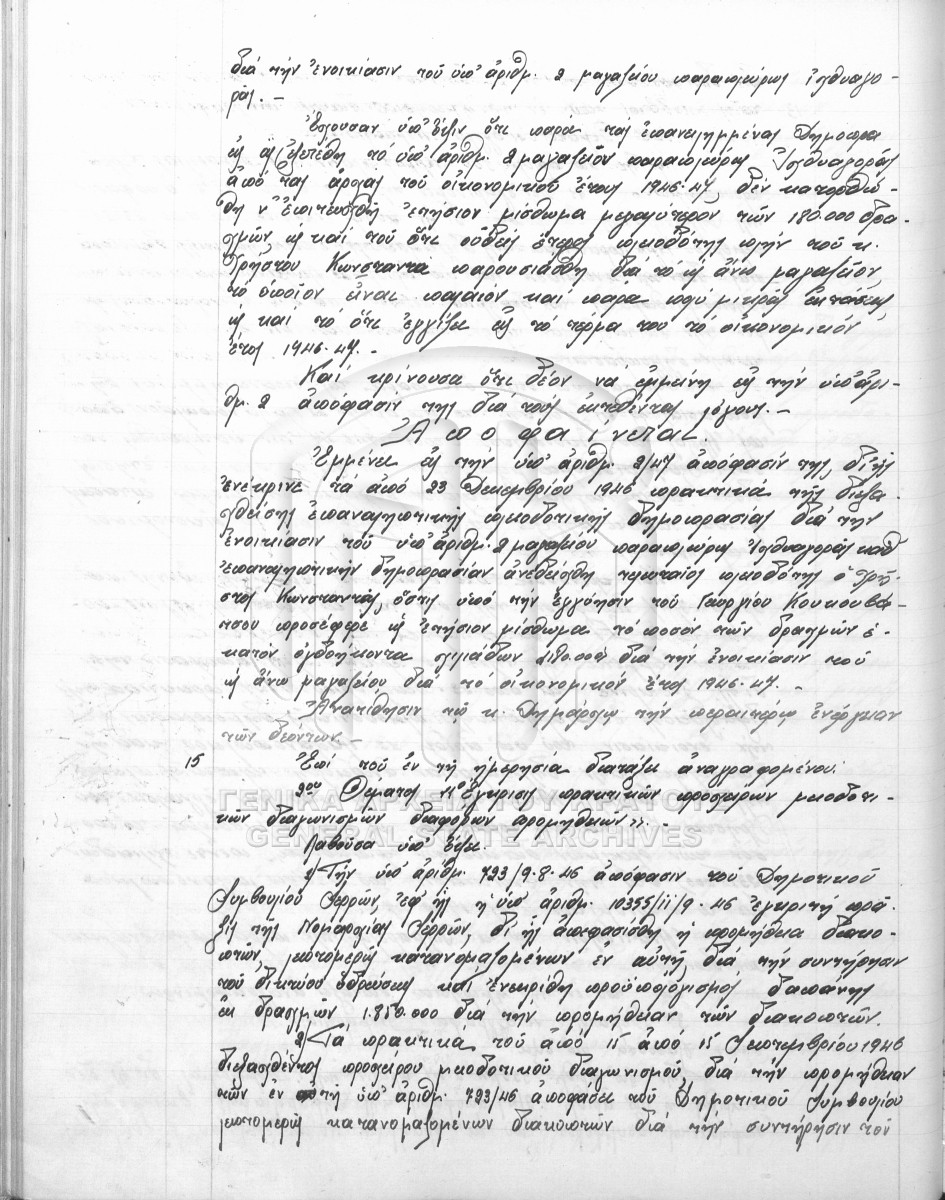 διά τήν ἐνοικίασιν τοῦ ὑπ' ἀριθμ. 2 μαγαζείου παραπλεύρως Ἰχθυαγο-
ρᾶς.-
Ἔχουσαν ὑπ' ὄψιν ὅτι παρά τάς ἐπανειλημμένας δημοπρα
ὡς ἐξετέθη τό ὑπ' ἀριθμ. 2 μαγαζεῖον παραπλεύρως Ἰχθυαγορᾶς
ἀπό τάς ἀρχάς τοῦ οἰκονομικοῦ ἔτους 1946-47, δέν κατορθώ-
θη ν' ἐπιτευχθῆ ἐτήσιον μίσθωμα μεγαλύτερον τῶν 180.000 δρα-
χμῶν ὡς καί τοῦ ὅτι οὐδείς ἕτερος πλειοδότης πλήν τοῦ κ.
Χρήστου Κωνσταντᾶ παρουσιάσθη διά τό ὡς ἄνω μαγαζεῖον
τό ὁποῖον εἶναι παλαιόν καί παρά πολύ μικρᾶς ἐκτάσεως
ὡς καί τό ὅτι ἐγγίζει εἰς τό τέρμα του τό οἰκονομικόν
ἔτος 1946-47.-
Καί κρίνουσα ὅτι δέον νά ἐμμείνη εἰς τήν ὑπ' ἀρι-
θμ. 2 ἀπόφασίν της διά τούς ἐκτεθέντας λόγους.-
Ἀποφαίνεται.
Ἐμμένει εἰς τήν ὑπ' ἀριθμ. 2/47 ἀπόφασίν της, δι' ἧς
ἐνέκρινε τά ἀπό 23 Δεκεμβρίου 1946 πρακτικά τῆς διεξα-
χθείσης ἐπαναληπτικῆς πλειοδοτικῆς δημοπρασίας διά τήν
ἐνοικίασιν τοῦ ὑπ' ἀριθμ. 2 μαγαζείου παραπλεύρως Ἰχθυαγορᾶς καθ'
ἐπαναληπτικήν δημοπρασίαν ἀνεδείχθη τελευταῖος πλειοδότης ὁ Χρῆ-
στος Κωνσταντᾶς, ὅστις ὑπό τήν ἐγγύησιν τοῦ Γεωργίου Κουκουβά-
τσου προσέφερε ὡς ἐτήσιον μίσθωμα τό ποσόν τῶν δραχμῶν ἑ-
κατόν ὀγδοήκοντα χιλιάδων 180.000 διά τήν ἐνοικίασιν τοῦ
ὡς ἄνω μαγαζείου διά τό οἰκονομικόν ἔτος 1946-47.-
Ἀνατίθησιν τῷ κ. Δημάρχῳ τήν περαιτέρω ἐνέργειαν
τῶν δεόντων.-
15 Ἐπί τοῦ ἐν τῇ ἡμερησία διατάξει ἀναγραφομένου:
2ου Θέματος "Ἔγκρισις πρακτικῶν προχείρων μειοδοτι-
κῶν διαγωνισμῶν διαφόρων προμηθειῶν".-
Λαβοῦσα ὑπ' ὄψει.
1) Τήν ὑπ' ἀριθμ. 723/9-8-46 ἀπόφασιν τοῦ Δημοτικοῦ
Συμβουλίου Σερρῶν, ἐφ' ἧς ἡ ὑπ' ἀριθμ. 10355/11/9-46 ἐγκριτή πρᾶ-
ξις τῆς Νομαρχίας Σερρῶν, δι' ἧς ἀπεφασίσθη ἡ προμήθεια διακο-
πτῶν, λεπτομερῶς κατονομαζομένων ἐν αὐτῇ, διά τήν συντήρησιν
τοῦ δικτύου ὑδρεύσεως καί ἐνεκρίθη προϋπολογισμός δαπάνης
ἐκ δραχμῶν 1.850.000 διά τήν προμήθειαν τῶν διακοπτῶν.
2) Τά πρακτικά τοῦ ἀπό 15 ἀπό 15 Σεπτεμβρίου 1946
διεξαχθέντος προχείρου μειοδοτικοῦ διαγωνισμοῦ, διά τήν προμήθειαν
τῶν ἐν αὐτῇ ὑπ' ἀριθμ. 723/46 ἀποφάσει τοῦ Δημοτικοῦ Συμβουλίου
λεπτομερῶς κατανομαζομένων διακοπτῶν διά τήν συντήρησιν τοῦ
ΓΕΝΙΚΑ ΑΡΧΕΙΑ ΤΟΥ ΚΡΑΤΟΥΣ
GENERAL STATE ARCHIVES